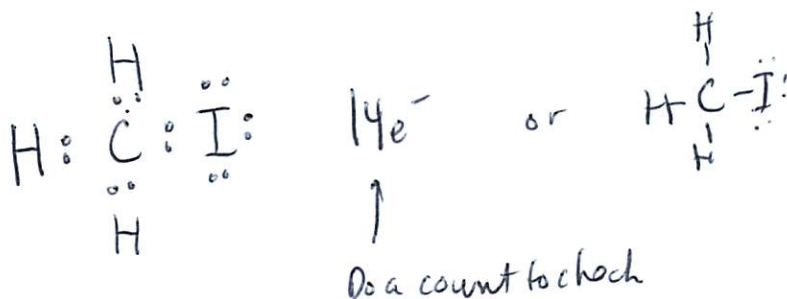 H
H : C : I : 14e⁻ or H-C-I:
H
H
H
Do a count to chech